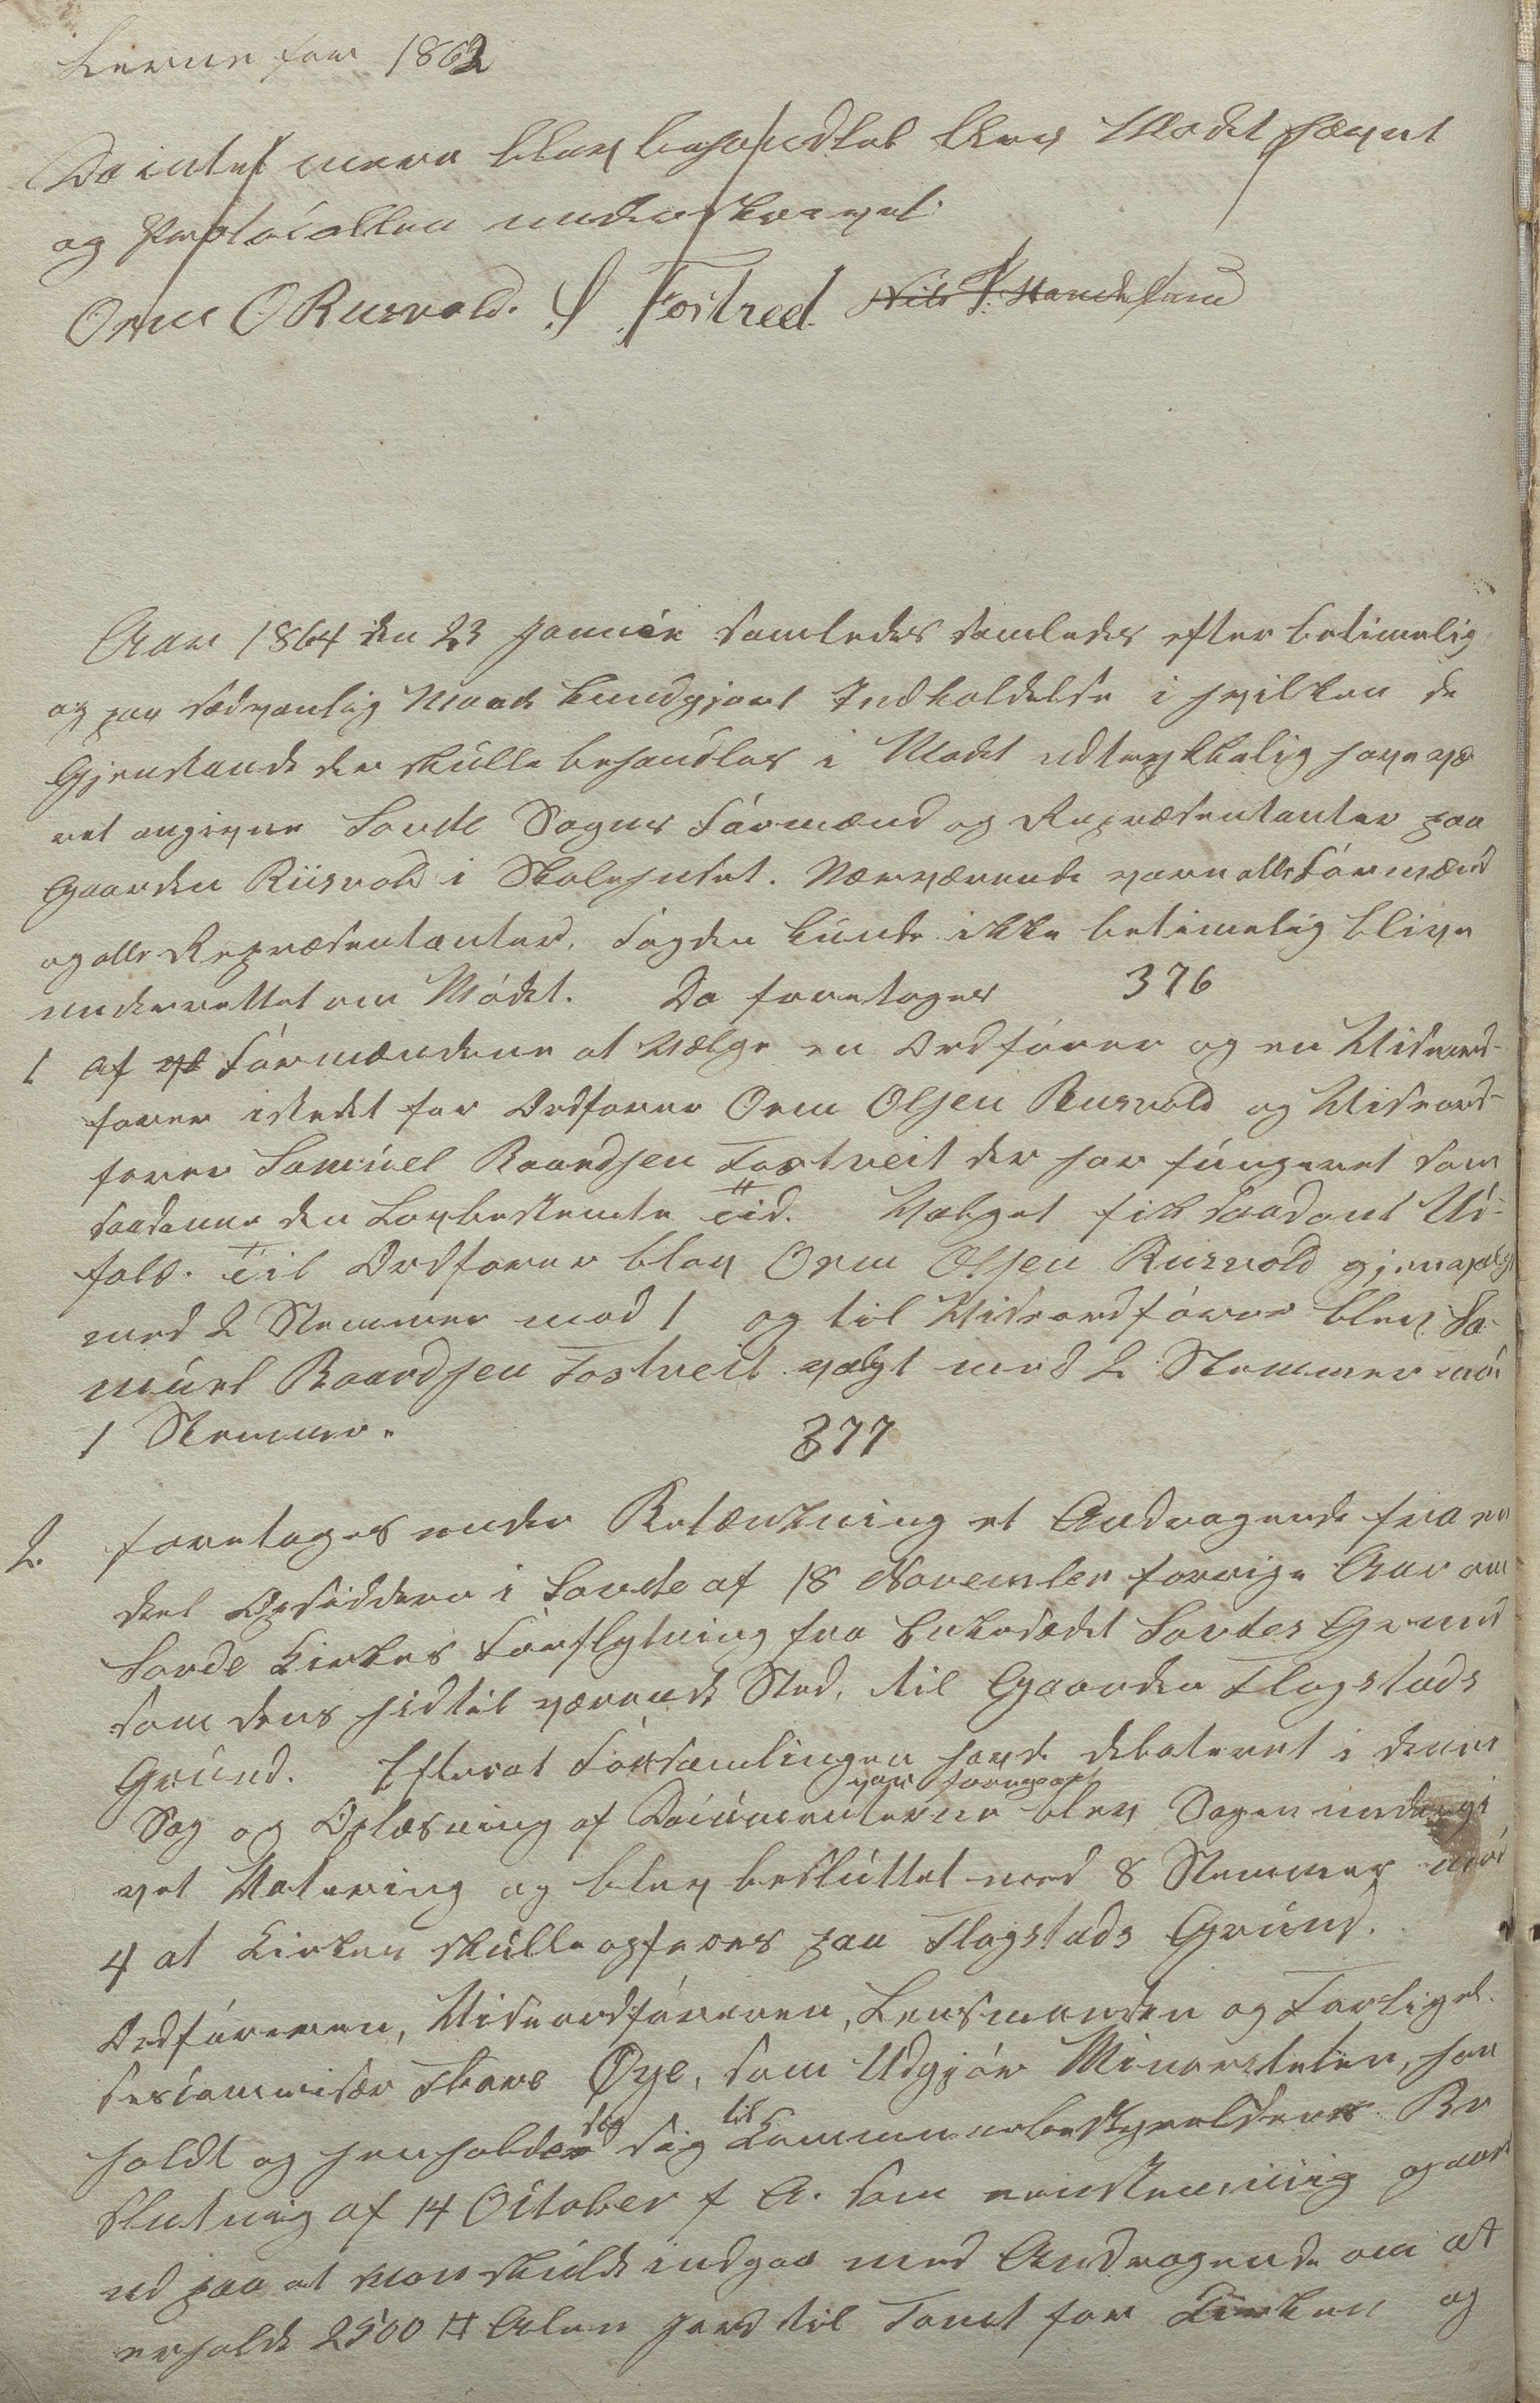 Lerne for 1862
Da intet mere blev behandlet blev Mødet hævet
og Protocollen underskrevet.
Orm O Rusvold. S Fostved. Nils T. Handeland
Aar 1864 den 23 Januar samledes samledes efter betimelig
og paa sædvanlig Maade kundgjort Indkaldelse i hvilken de
Gjenstande der skulle behandles i Mødet udtrykkelig have væ
ret angivne Sovde Sogns Formænd og Repræsentanter paa
Gaarden Rusvold i Skolehuset. Nærværende vare alle Formænd
og alle Repræsentanter, Fogden kunde ikke betimelig blive
underrettet om Mødet. Da foretoges 376
1 af Formændene at vælge en Ordfører og en Viseord-
fører istedet for Ordfører Orm Olsen Rusvold og Viseord-
fører Samuel Baardsen Fostveit der har fungeret som
saadanne den Lovbestemte Tid. Valget fik saadant Ud-
fald. Til Ordfører blev Orm Olsen Rusvold gjenvalgt
med 2 Stemmer mod 1 og til Viseordfører blev Sa-
muel Baardsen Fostveit valgt med 2 Stemmer mod
1 Stemmer.
377
2. foretoges under Betænkning et Andragende fra en
deel Opsiddere i Sovde af 18 November forrige Aar om
Sovde Kirkes Forflytning fra Enkesædet Sovdes Grund
som dens hidtil værende Sted, til Gaarden Flogstads
Grund. Efterat Forsamlingen havde debateret i denne
var foregaaet
Sag og Oplæsning af Documenterne blev Sagen undergi
vet Votering og blev besluttet med 8 Stemmer mod
4 at Kirken skulle opføres paa Flogstads Grund.
Ordføreren, Viseordføreren, Lensmanden og Forligel-
sescommisær Thore Øye, som Udgjør Minoriteten, har
sig til
holdt og henholder sig Kommunebestyrelsens Be
slutning af 14 October f A. som eenstemmig gaar
ud paa at man skulde indgaa med Andragende om at
erholde 2500 # Alen Jord til Tomt for Kirken og